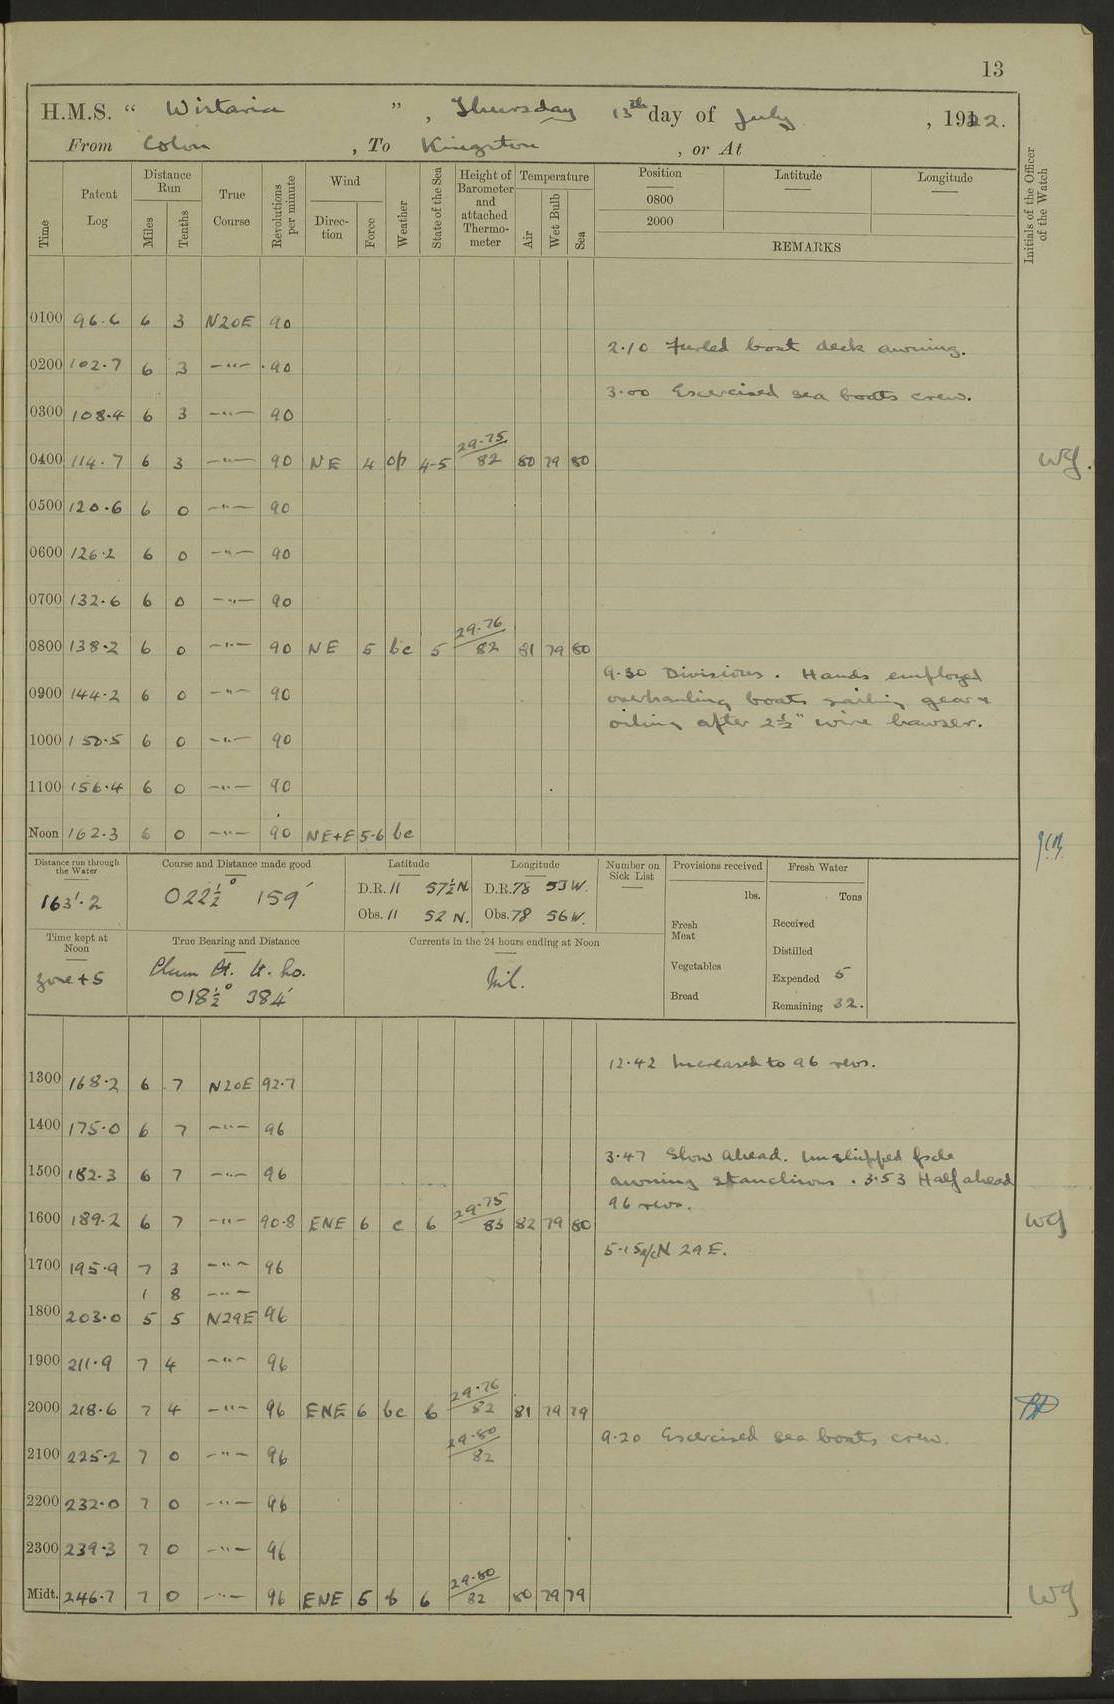 13
H.M.S. “ Wistaria ”, Thursday 13th day of July, 1922.
From Colon, To Kingston, or At
Time
Patent Log
Distance Run
Miles
Tenths
True Course
Revolutions per minute
Wind
Direction
Force
Weather
State of the Sea
Height of Barometer and attached Thermometer
Temperature
Air
Wet Bulb
Sea
Position
Latitude
Longitude
0800
2000
REMARKS
Initials of the Officer of the Watch
0100 96.6 6 3 N20E 90
2.10 Furled boat deck awning.
0200 102.7 6 3 —"— 90
3.00 Exercised sea boats crew.
0300 108.4 6 3 —"— 90
0400 114.7 6 3 —"— 90 NE 4 op 4-5 29.75/82 80 79 80
0500 120.6 6 0 —"— 90
0600 126.2 6 0 —"— 90
0700 132.6 6 0 —"— 90
0800 138.2 6 0 —"— 90 NE 5 bc 5 29.76/82 81 79 80
9.30 Divisions. Hands employed
0900 144.2 6 0 —"— 90
overhauling boats sailing gear &
oiling after 2½" wire hawser.
1000 150.5 6 0 —"— 90
1100 156.4 6 0 —"— 90
Noon 162.3 6 0 —"— 90 NE+E 5-6 bc
Distance run through the Water
163'.2
Course and Distance made good
022½° 159'
Latitude
D.R. 11 57½ N.
Obs. 11 52 N.
Longitude
D.R. 78 53 W.
Obs. 78 56 W.
Number on Sick List
Provisions received
lbs.
Fresh Meat
Vegetables
Bread
Fresh Water
Tons
Received
Distilled
Expended 5
Remaining 32.
Time kept at Noon
Zone +5
True Bearing and Distance
Plum Pt. Lt. Ho.
018½° 384'
Currents in the 24 hours ending at Noon
Nil.
12.42 Increased to 96 revs.
1300 168.2 6 7 N20E 92.7
1400 175.0 6 7 —"— 96
3.47 Slow Ahead. Unshipped fxcle
1500 182.3 6 7 —"— 96
awning stanchions. 3.53 Half ahead
96 revs.
1600 189.2 6 7 —"— 90.8 ENE 6 c 6 29.75/83 82 79 80
5.15 a/c N 29 E.
1700 195.9 7 3 —"— 96
1 8 —"—
1800 203.0 5 5 N29E 96
1900 211.9 7 4 —"— 96
2000 218.6 7 4 —"— 96 ENE 6 bc 6 29.76/82 81 79 79
9.20 Exercised sea boats crew.
2100 225.2 7 0 —"— 96 29.80/82
2200 232.0 7 0 —"— 96
2300 239.3 7 0 —"— 96
Midt. 246.7 7 0 —"— 96 ENE 5 b 6 29.80/82 80 79 79